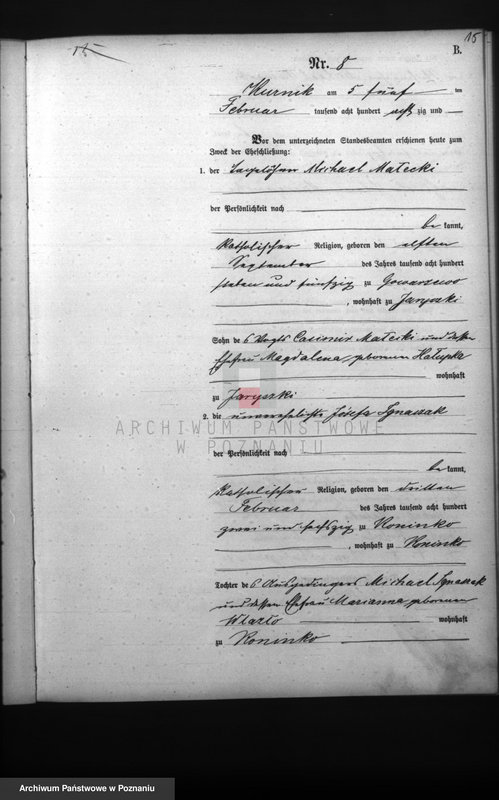 15
15
B.
Nr. 8
Kurnik am 5 fünf ten
Februar tausend acht hundert acht zig und
Vor dem unterzeichneten Standesbeamten erschienen heute zum
Zweck der Eheschließung:
1. der Tagelöhner Michael Małecki
der Persönlichkeit nach
be kannt,
katholischer Religion, geboren den elften
September des Jahres tausend acht hundert
sieben und fünfzig zu Gowarzewo
, wohnhaft zu Jaryszki
Sohn des Vogts Casimir Małecki und dessen
Ehefrau Magdalena, geborenen Hałupka
wohnhaft
zu Jaryszki
2. die unverehelichte Józefa Ignaszak
ARCHIWUM PAŃSTWOWE
W POZNANIU
der Persönlichkeit nach
be kannt,
katholischer Religion, geboren den dritten
Februar des Jahres tausend acht hundert
zwei und sechszig zu Koninko
, wohnhaft zu Koninko
Tochter des Ausgedingers Michael Ignaszak
und dessen Ehefrau Marianna geborenen
wohnhaft
zu Koninko
Archiwum Państwowe w Poznaniu